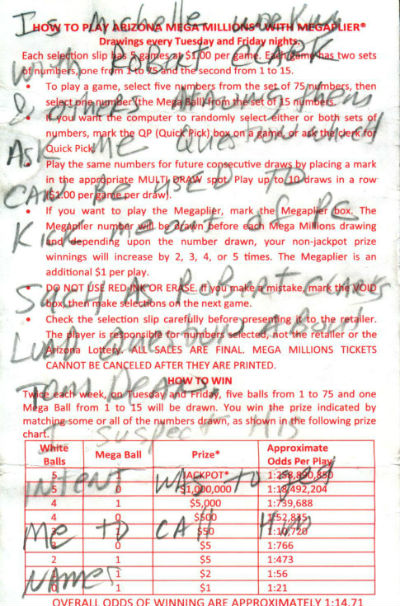 HOW TO PLAY ARIZONA MEGA MILLIONS® WITH MEGAPLIER®
Drawings every Tuesday and Friday nights.
Each selection slip has 5 games at $1.00 per game. Each game has two sets
of numbers, one from 1 to 75 and the second from 1 to 15.
• To play a game, select five numbers from the set of 75 numbers, then
select one number (the Mega Ball) from the set of 15 numbers.
• If you want the computer to randomly select either or both sets of
numbers, mark the QP (Quick Pick) box on a game, or ask the clerk for
Quick Pick.
Play the same numbers for future consecutive draws by placing a mark
in the appropriate MULTI DRAW spot. Play up to 10 draws in a row
($1.00 per game per draw).
• If you want to play the Megaplier, mark the Megaplier box. The
Megaplier number will be drawn before each Mega Millions drawing
and depending upon the number drawn, your non-jackpot prize
winnings will increase by 2, 3, 4, or 5 times. The Megaplier is an
additional $1 per play.
• DO NOT USE RED INK OR ERASE. If you make a mistake, mark the VOID
box, then make selections on the next game.
• Check the selection slip carefully before presenting it to the retailer.
The player is responsible for numbers selected, not the retailer or the
Arizona Lottery. ALL SALES ARE FINAL. MEGA MILLIONS TICKETS
CANNOT BE CANCELED AFTER THEY ARE PRINTED.
HOW TO WIN
Twice each week, on Tuesday and Friday, five balls from 1 to 75 and one
Mega Ball from 1 to 15 will be drawn. You win the prize indicated by
matching some or all of the numbers drawn, as shown in the following prize
chart.
White Balls Mega Ball Prize* Approximate Odds Per Play
5 JACKPOT* 1:258,890,850
5 0 $1,000,000 1:18,492,204
4 1 $5,000 1:739,688
4 0 $500 1:52,835
$50 1:10,720
3 0 $5 1:766
2 1 $5 1:473
1 $2 1:56
0 1 $1 1:21
OVERALL ODDS OF WINNING ARE APPROXIMATELY 1:14.71
Is Michelle working
with Robert Clark
& Gunners making them
Ask me question which
can be used to
kick me out of PC
such as Robert Clarks
Loud question about
Tom Dean.
I suspect his
intent was to get
me to call him
names